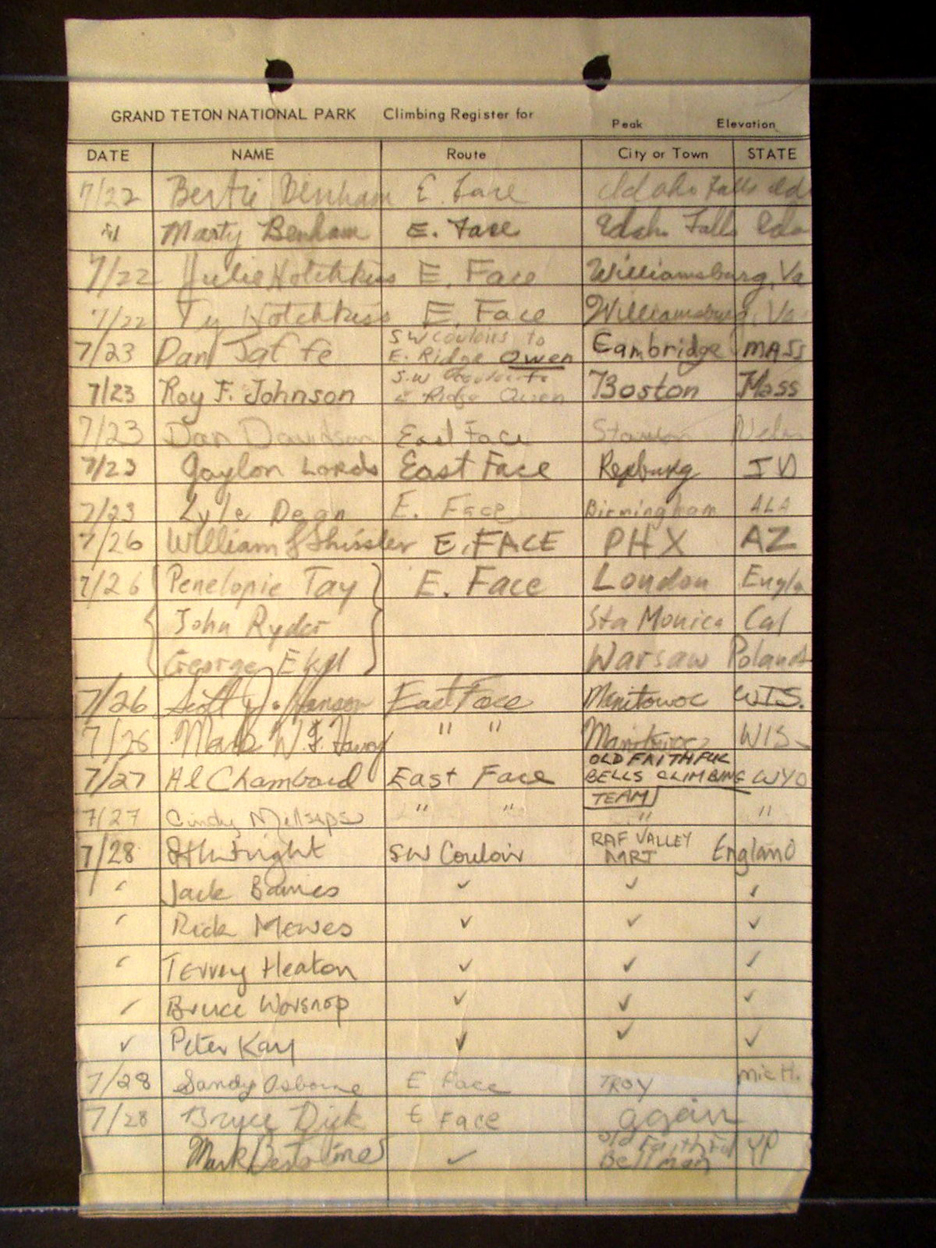 GRAND TETON NATIONAL PARK Climbing Register for Peak Elevation
DATE NAME Route City or Town STATE
7/22 Bertie Benham E. Face Idaho Falls Ida
" Marty Benham E. Face Idaho Falls Ida
7/22 Julie Hotchkiss E. Face Williamsburg, Va
7/22 Ty Hotchkiss E. Face Williamsburg, Va
7/23 Dan Jaffe SW couloirs to E. Ridge Owen Cambridge MASS
7/23 Roy F. Johnson S.W Couloir to E Ridge Owen Boston Mass
7/23 Dan Davidson East Face
7/23 Gaylon Lords East Face Rexburg ID
7/23 Lyle Dean E. Face Birmingham ALA
7/26 William Shissler E. FACE PHX AZ
7/26 Penelopie Tay E. Face London Engla
John Ryder Sta Monica Cal
George Warsaw Poland
7/26 Scott J. Hanson East Face Manitowoc WIS.
7/26 Mark W. " " Manitowoc WIS.
7/27 Al Chambard East Face OLD FAITHFUL BELLS CLIMBING TEAM WYO
7/27 Cindy Millsaps " " " "
7/28 SW Couloir RAF VALLEY MRT England
" Jack Baines ✓ ✓ ✓
" Rick Mewes ✓ ✓ ✓
" Terrey Heaton ✓ ✓ ✓
✓ Bruce Worsnop ✓ ✓ ✓
✓ Peter Kay ✓ ✓ ✓
7/28 Sandy Osborne E Face TROY MICH.
7/28 Bryce Dick E Face again
Mark ✓ Old Faithful Bellman YP